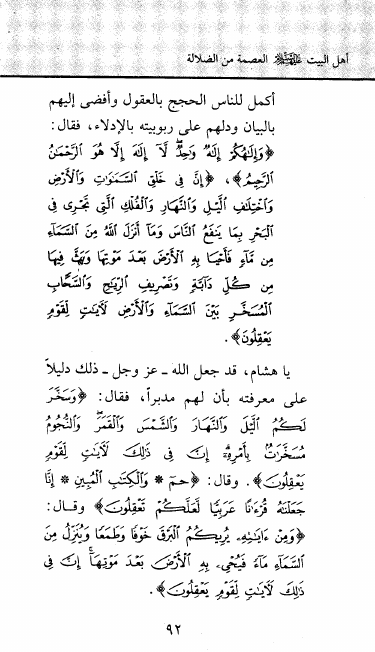 أهل البيت عليهم السلام العصمة من الضلالة
أكمل للناس الحجج بالعقول وأفضى إليهم
بالبيان ودلهم على ربوبيته بالإدلاء، فقال:
﴿وَإِلَٰهُكُمْ إِلَٰهٌ وَٰحِدٌ ۖ لَّآ إِلَٰهَ إِلَّا هُوَ الرَّحْمَٰنُ
الرَّحِيمُ﴾، ﴿إِنَّ فِى خَلْقِ السَّمَٰوَٰتِ وَالْأَرْضِ
وَاخْتِلَٰفِ الَّيْلِ وَالنَّهَارِ وَالْفُلْكِ الَّتِى تَجْرِى فِى
الْبَحْرِ بِمَا يَنفَعُ النَّاسَ وَمَآ أَنزَلَ اللَّهُ مِنَ السَّمَآءِ
مِن مَّآءٍ فَأَحْيَا بِهِ الْأَرْضَ بَعْدَ مَوْتِهَا وَبَثَّ فِيهَا
مِن كُلِّ دَآبَّةٍ وَتَصْرِيفِ الرِّيَٰحِ وَالسَّحَابِ
الْمُسَخَّرِ بَيْنَ السَّمَآءِ وَالْأَرْضِ لَأٓيَٰتٍ لِّقَوْمٍ
يَعْقِلُونَ﴾.
يا هشام، قد جعل الله ـ عز وجل ـ ذلك دليلاً
على معرفته بأن لهم مدبراً، فقال: ﴿وَسَخَّرَ
لَكُمُ الَّيْلَ وَالنَّهَارَ وَالشَّمْسَ وَالْقَمَرَ ۖ وَالنُّجُومُ
مُسَخَّرَٰتٌۢ بِأَمْرِهِۦٓ ۗ إِنَّ فِى ذَٰلِكَ لَأٓيَٰتٍ لِّقَوْمٍ
يَعْقِلُونَ﴾. وقال: ﴿حمٓ * وَالْكِتَٰبِ الْمُبِينِ * إِنَّا
جَعَلْنَٰهُ قُرْءَٰنًا عَرَبِيًّا لَّعَلَّكُمْ تَعْقِلُونَ﴾ وقال:
﴿وَمِنْ ءَايَٰتِهِۦ يُرِيكُمُ الْبَرْقَ خَوْفًا وَطَمَعًا وَيُنَزِّلُ مِنَ
السَّمَآءِ مَآءً فَيُحْىِۦ بِهِ الْأَرْضَ بَعْدَ مَوْتِهَآ ۚ إِنَّ فِى
ذَٰلِكَ لَأٓيَٰتٍ لِّقَوْمٍ يَعْقِلُونَ﴾.
٩٢